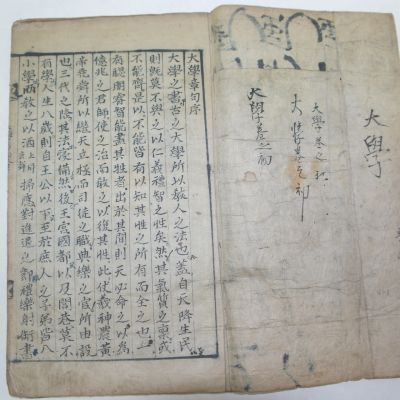 大學
大學卷之初
大學卷之初
大學章句序
大學之書古之大學所以敎人之法也蓋自天降生民
則旣莫不與之以仁義禮智之性矣然其氣質之稟或
不能齊是以不能皆有以知其性之所有而全之也一
有聰明睿智能盡其性者出於其間則天必命之以爲
億兆之君師使之治而敎之以復其性此伏羲神農黃
帝堯舜所以繼天立極而司徒之職典樂之官所由設
也三代之隆其法寖備然後王宮國都以及閭巷莫不
有學人生八歲則自王公以下至於庶人之子弟皆入
小學而敎之以洒掃應對進退之節禮樂射御書